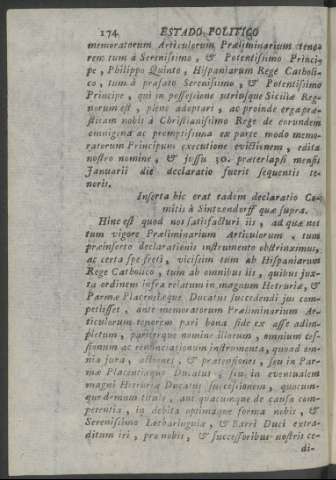 174 ESTADO POLITICO
memoratorum Articulorum Præliminarium teno-
rem tum à Serenissimo, & Potentissimo Princi-
pe, Philippo Quinto, Hispaniarum Rege Catholi-
co, tum à præfato Serenissimo, & Potentissimo
Principe, qui in possessione utriusque Siciliæ Reg-
norum est, plene adoptari, ac proinde erga præs-
titam nobis à Christianissimo Rege de eorundem
omnigena ac promptissima ex parte modo memo-
ratorum Principum executione evictionem, edita
nostro nomine, & jussu 30. præterlapsi mensis
Januarii die declaratio fuerit sequentis te-
noris.
Inserta hic erat eadem declaratio Co-
mitis à Sintzendorff quæ supra.
Hinc est quod nos satisfacturi iis, ad quæ nos
tum vigore Præliminarium Articulorum, tum
præinserto declarationis instrumento obstrinximus,
ac certa spe freti, vicissim tum ab Hispaniarum
Rege Catholico, tum ab omnibus iis, quibus jux-
ta ordinem infra relatum in magnum Hetruriæ, &
Parmæ Placentiæque Ducatus succedendi jus com-
petiisset, ante memoratorum Præliminarium Ar-
ticulorum tenorem pari bona fide ex asse adim-
pletum, pariterque nomine illorum, omnium ces-
sionum ac renunciationum instrumenta, quoad om-
nia jura, actiones, & prætensiones, seu in Par-
mæ Placentiæque Ducatus, seu in eventualem
magni Hetruriæ Ducatus successionem, quocum-
que demum titulo, aut quacumque de causa com-
petentia, in debita optimaque forma nobis, &
Serenissimo Lotharingiæ, & Barri Duci extra-
ditum iri, pro nobis, & successoribus nostris ce-
di-